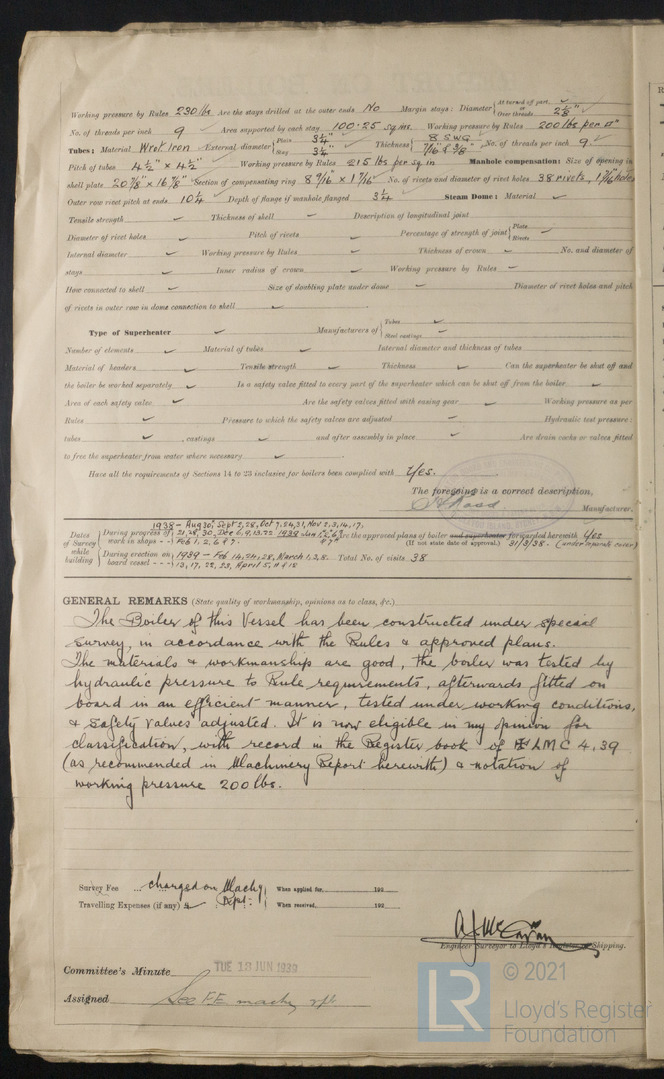 Working pressure by Rules 230 lbs Are the stays drilled at the outer ends No Margin stays: Diameter { At turned off part, ✓ or Over threads 2 5/8" ✓
No. of threads per inch 9 ✓ Area supported by each stay 100.25 sq ins. Working pressure by Rules 200 lbs per □"
Tubes: Material Wrot Iron ✓ External diameter { Plain 3¼" Stay 3¼" ✓ Thickness { 8 SWG 7/16" & 3/8" ✓ No. of threads per inch 9 ✓
Pitch of tubes 4½" × 4½" ✓ Working pressure by Rules 215 lbs per sq in Manhole compensation: Size of opening in
shell plate 20 7/8" × 16 7/8" Section of compensating ring 8 9/16" × 1 7/16" No. of rivets and diameter of rivet holes 38 rivets, holes
Outer row rivet pitch at ends 10¼ Depth of flange if manhole flanged 3¼ ✓ Steam Dome: Material ✓
Tensile strength ✓ Thickness of shell ✓ Description of longitudinal joint
Diameter of rivet holes ✓ Pitch of rivets ✓ Percentage of strength of joint { Plate Rivets
Internal diameter ✓ Working pressure by Rules ✓ Thickness of crown ✓ No. and diameter of
stays ✓ Inner radius of crown ✓ Working pressure by Rules ✓
How connected to shell ✓ Size of doubling plate under dome ✓ Diameter of rivet holes and pitch
of rivets in outer row in dome connection to shell ✓
Type of Superheater ✓ Manufacturers of { Tubes ✓ Steel castings ✓
Number of elements ✓ Material of tubes ✓ Internal diameter and thickness of tubes
Material of headers ✓ Tensile strength ✓ Thickness ✓ Can the superheater be shut off and
the boiler be worked separately ✓ Is a safety valve fitted to every part of the superheater which can be shut off from the boiler ✓
Area of each safety valve ✓ Are the safety valves fitted with easing gear ✓ Working pressure as per
Rules ✓ Pressure to which the safety valves are adjusted ✓ Hydraulic test pressure:
tubes ✓, castings ✓ and after assembly in place ✓ Are drain cocks or valves fitted
to free the superheater from water where necessary ✓
Have all the requirements of Sections 14 to 23 inclusive for boilers been complied with Yes.
The foregoing is a correct description,
Manufacturer.
Dates of Survey while building { During progress of work in shops - - 1938 - Aug 30, Sept 2, 28, Oct 7, 24, 31, Nov 2, 3, 14, 17, 21, 28, 30, Dec 6, 9, 13, 22 1939 Jan Feb 1, 2, 6 & 7.
Are the approved plans of boiler and superheater forwarded herewith Yes
(If not state date of approval.) 31/3/38. (under separate cover)
During erection on board vessel - - - 1939 - Feb 14, 24, 28, March 1, 2, 8, 13, 17, 22, 23, April 5, 11 & 18 Total No. of visits 38
GENERAL REMARKS (State quality of workmanship, opinions as to class, &c.)
The Boiler of this Vessel has been constructed under special
survey, in accordance with the Rules & approved plans.
The materials & workmanship are good, the boiler was tested by
hydraulic pressure to Rule requirements, afterwards fitted on
board in an efficient manner, tested under working conditions,
& Safety Valves adjusted. It is now eligible in my opinion for
classification, with record in the Register book of ✠ LMC 4.39
(as recommended in Machinery Report herewith) & notation of
working pressure 200 lbs.
Survey Fee ... charged on Machy When applied for, 192
Travelling Expenses (if any) £ Rept: When received, 192
Engineer Surveyor to Lloyd's Register of Shipping.
Committee's Minute TUE 13 JUN 1939
Assigned See F.E. machy rpt
LR © 2021
Lloyd's Register
Foundation